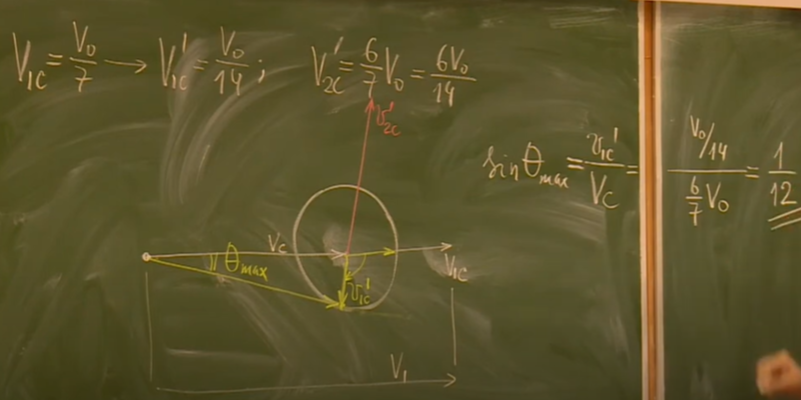 V₁c = V₀/7 → V₁c' = V₀/14 ; V₂c' = 6/7 V₀ = 6V₀/14
v₂c'
sin θmax = v₁c'/Vc = (V₀/14)/(6/7 V₀) = 1/12
Vc
θmax
V₁c
v₁c'
V₁